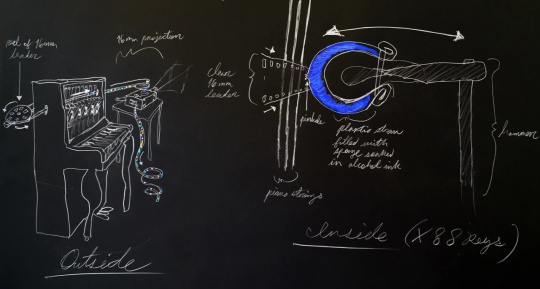 reel of 16mm
leader
16mm projection
Outside
clear
16mm
leader
pinhole
plastic straw
filled with
sponge soaked
in alcohol ink
piano strings
hammer
Inside (X 88 Keys)